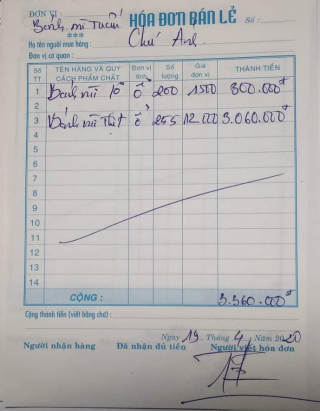 ĐƠN VỊ: Bánh mì Tuấn HÓA ĐƠN BÁN LẺ Số:
***
Họ tên người mua hàng: Chú Ánh
Đơn vị cơ quan:
Số TT TÊN HÀNG VÀ QUY CÁCH PHẨM CHẤT Đơn vị tính Số lượng Giá đơn vị THÀNH TIỀN
1 Bánh mì ổ 200 1500 300.000đ
2
3 Bánh mì thịt ổ 255 12.000 3.060.000đ
4
5
6
7
8
9
10
11
12
13
14
CỘNG: 3.360.000đ
Cộng thành tiền (viết bằng chữ):
Ngày 19 Tháng 4 Năm 2020
Người nhận hàng Đã nhận đủ tiền Người viết hóa đơn